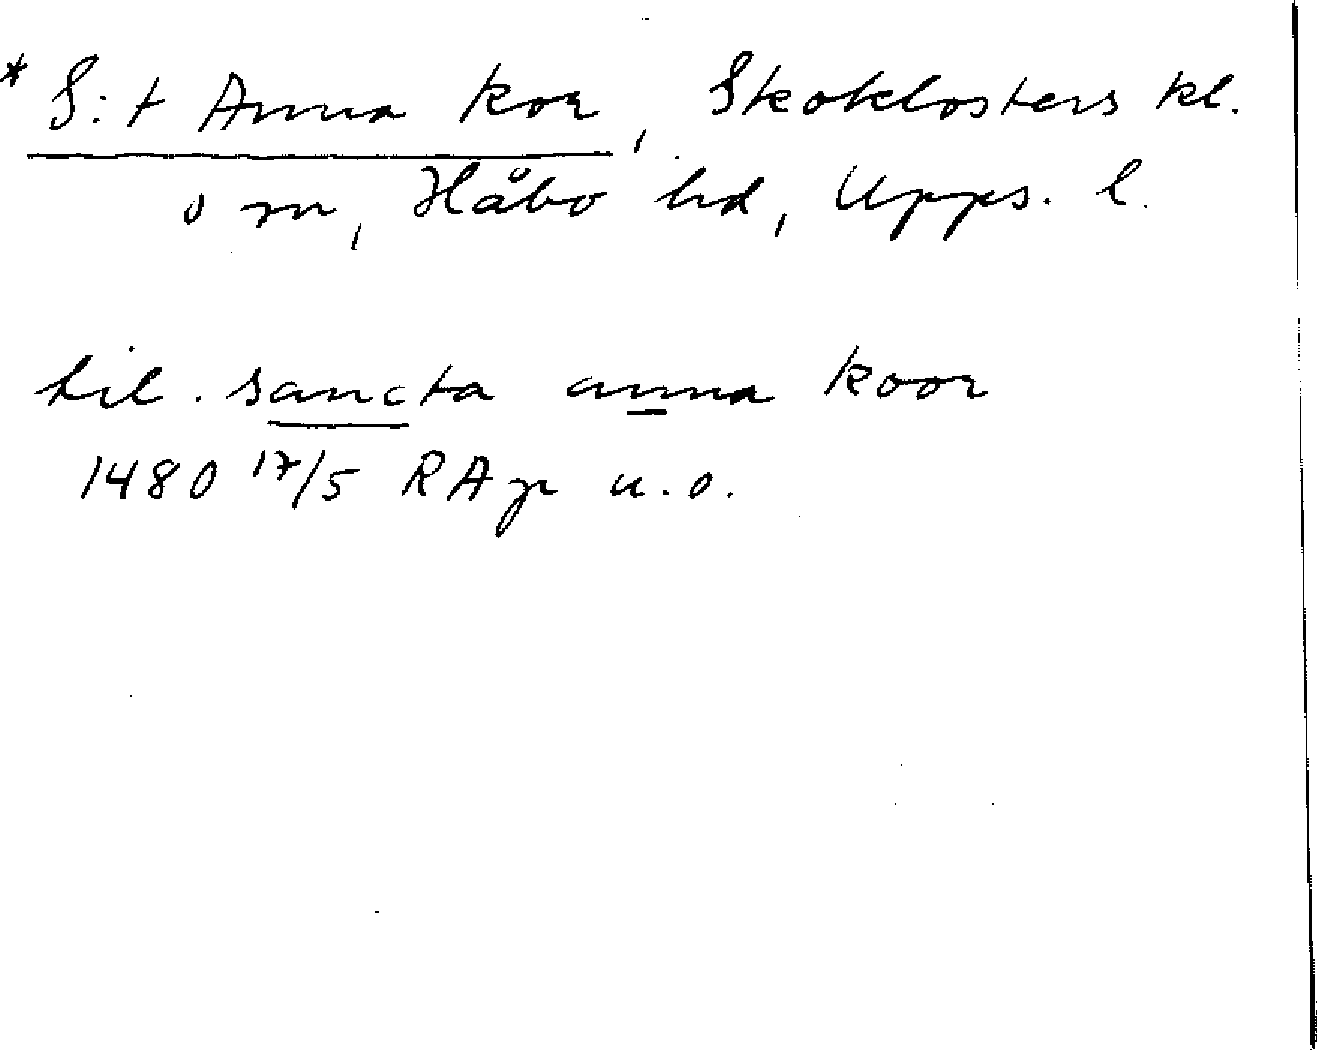 * S:t Anna kor, Skoklosters kl.
o sn, Håbo hd, Upps. l.
til. sancta anna koor
1480 17/5 RAp u.o.